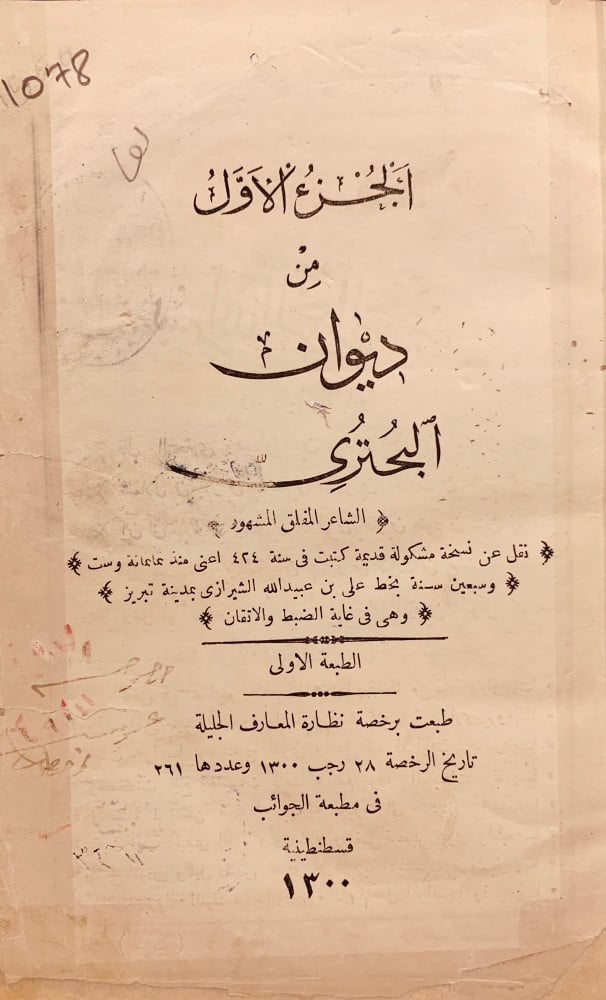 1078
اَلْجُزْءُ الْاَوَّلُ
مِنْ
دِيْوَان
اَلْبُحْتُرِي
الشاعر المفلق المشهور
نقل عن نسخة مشكولة قديمة كتبت فى سنة ٤٢٤ اعنى منذ ثمانمائة وست
وسبعين سنة بخط على بن عبيدالله الشيرازى بمدينة تبريز
وهى فى غاية الضبط والاتقان
الطبعة الاولى
طبعت برخصة نظارة المعارف الجليلة
تاريخ الرخصة ٢٨ رجب ١٣٠٠ وعددها ٢٦١
فى مطبعة الجوائب
قسطنطينية
١٣٠٠